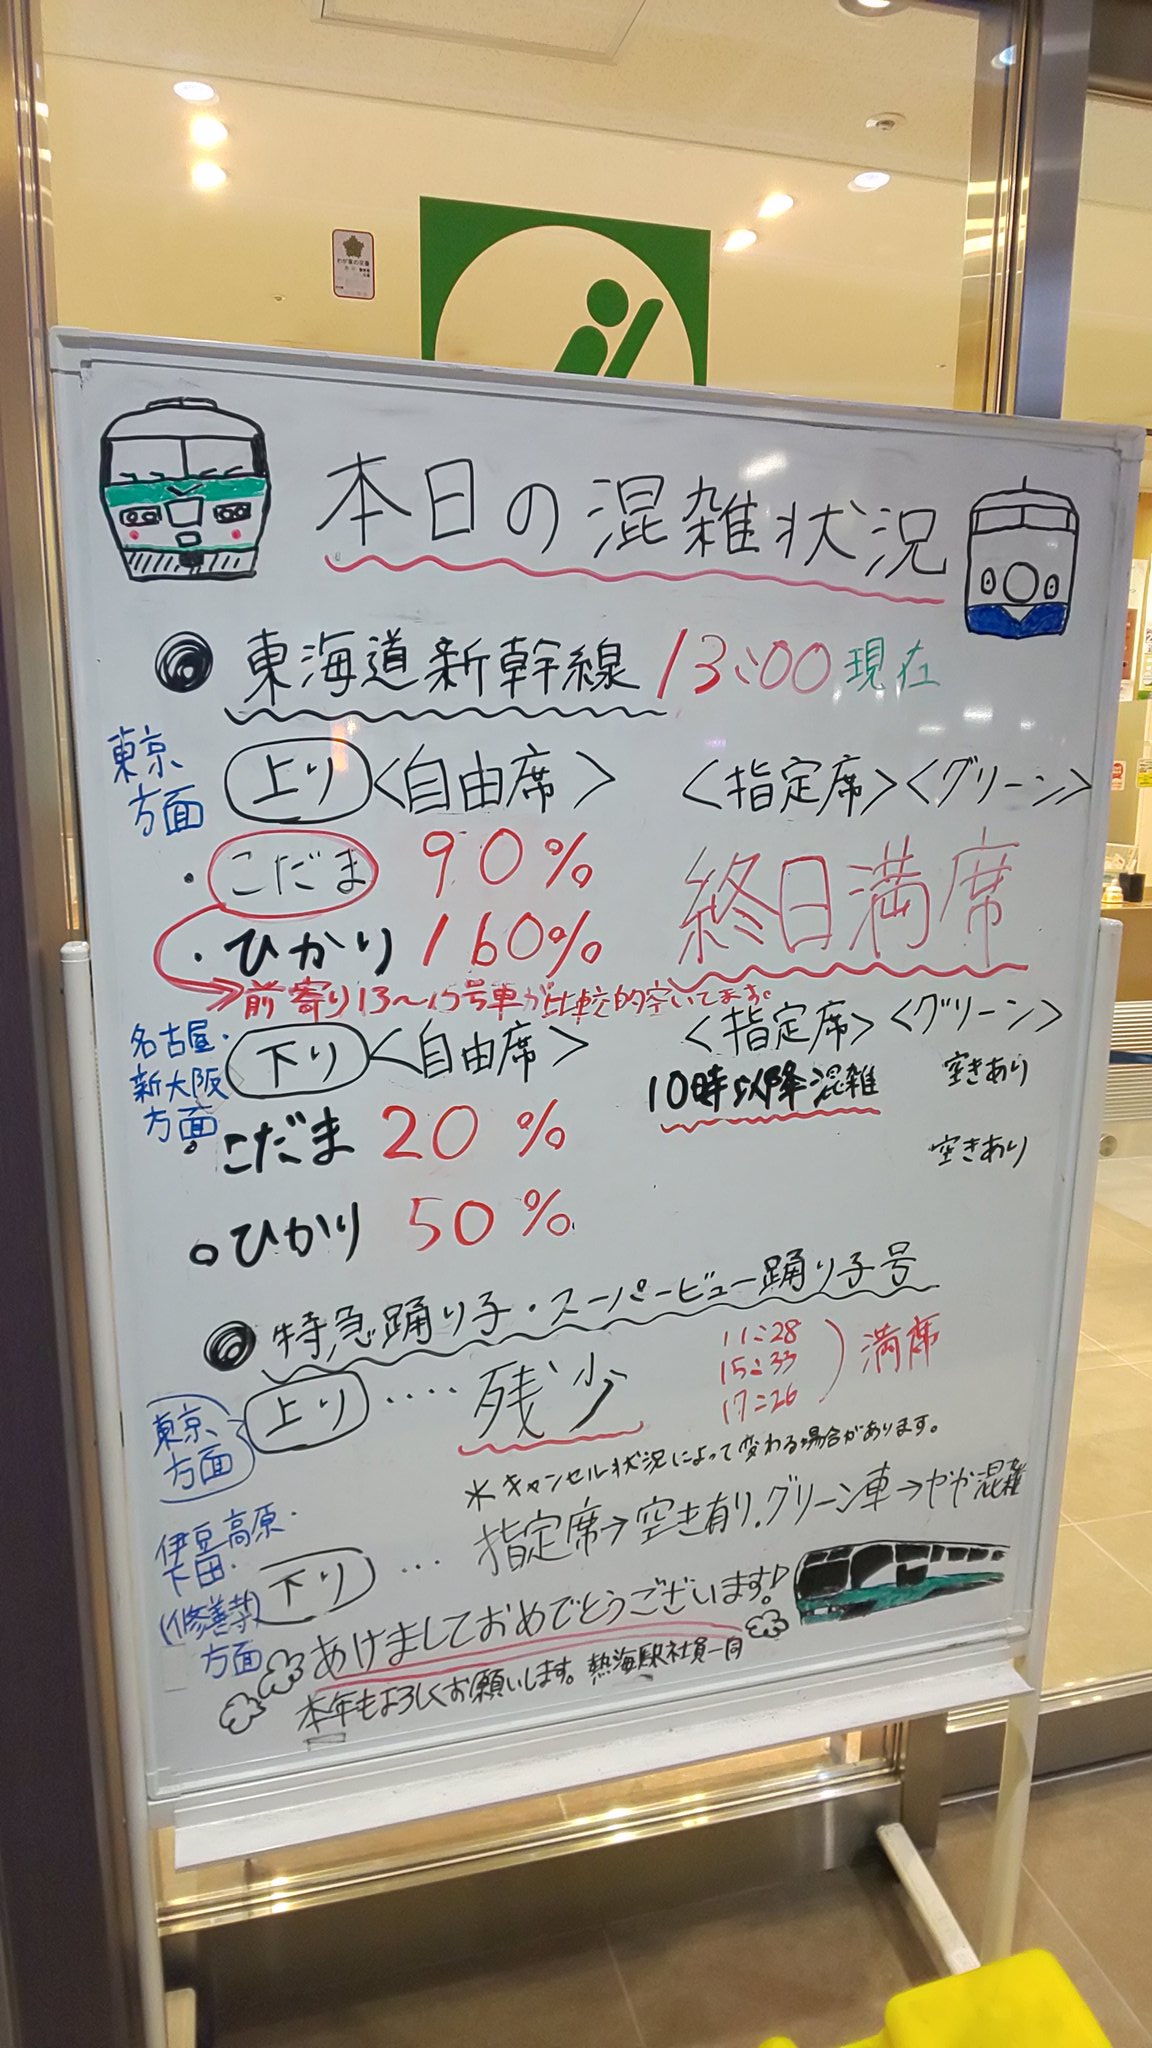 本日の混雑状況
東海道新幹線 13:00 現在
東京方面 上り <自由席> <指定席> <グリーン>
・こだま 90%
・ひかり 160% 終日満席
前寄り13〜15号車が比較的空いてます。
名古屋・新大阪方面 下り <自由席> <指定席> <グリーン>
10時以降混雑 空きあり
。こだま 20% 空きあり
○ひかり 50%
特急踊り子・スーパービュー踊り子号
東京方面 上り ‥‥ 残少
11:28
15:33
17:26
満席
＊キャンセル状況によって変わる場合があります。
伊豆高原・下田・(修善寺)方面 下り … 指定席→空き有り.グリーン車→やや混雑
あけましておめでとうございます♪
本年もよろしくお願いします。熱海駅社員一同